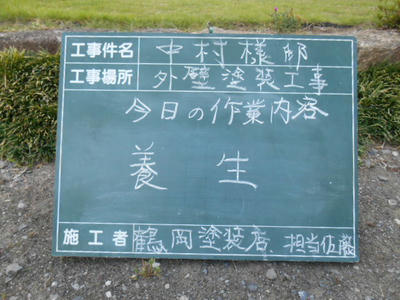 工事件名 中村様邸
工事場所 外壁塗装工事
今日の作業内容
養生
施工者 鶴岡塗装店、担当佐藤